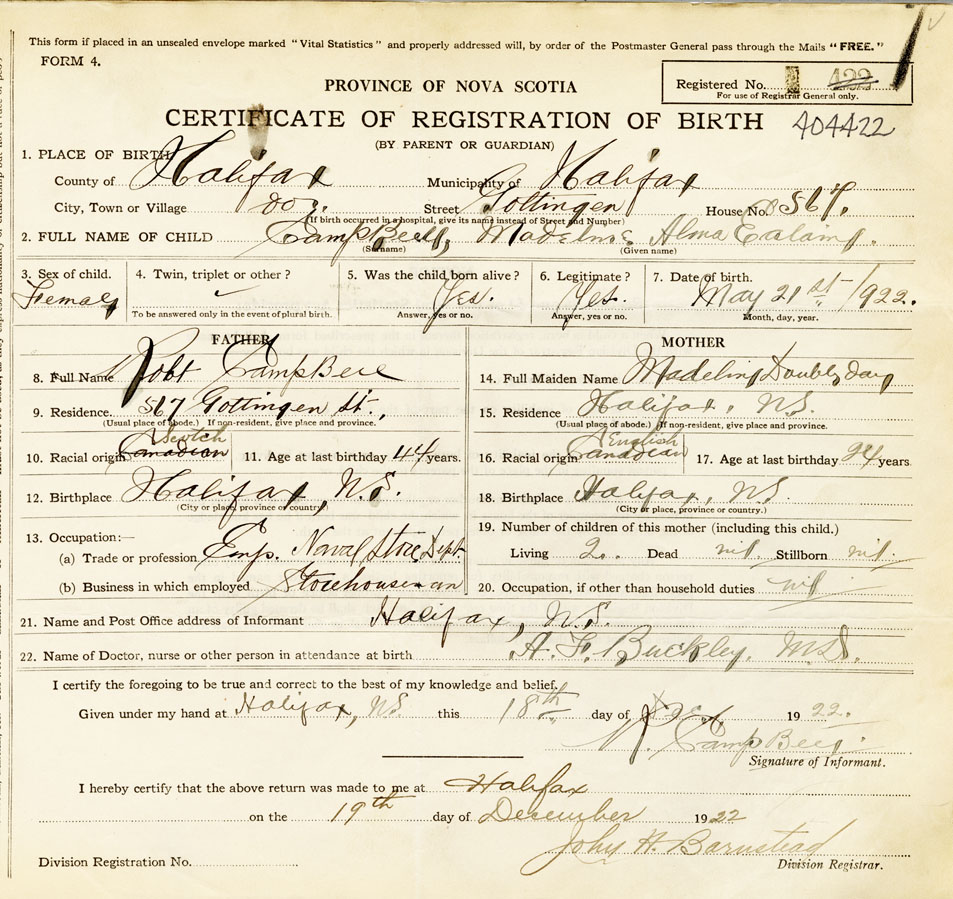 This form if placed in an unsealed envelope marked "Vital Statistics" and properly addressed will, by order of the Postmaster General pass through the Mails "FREE."
FORM 4.
PROVINCE OF NOVA SCOTIA
Registered No. 422
For use of Registrar General only.
CERTIFICATE OF REGISTRATION OF BIRTH 404422
(BY PARENT OR GUARDIAN)
1. PLACE OF BIRTH
County of Halifax Municipality of Halifax
City, Town or Village do. Street Gottingen House No. 567.
(If birth occurred in a hospital, give its name instead of Street and Number)
2. FULL NAME OF CHILD CampBell, Alma
(Surname) (Given name)
3. Sex of child. 4. Twin, triplet or other? 5. Was the child born alive? 6. Legitimate? 7. Date of birth.
Female Yes. Yes. May 21st 1922.
To be answered only in the event of plural birth. Answer, yes or no. Answer, yes or no. Month, day, year.
FATHER MOTHER
8. Full Name Robt CampBell 14. Full Maiden Name Doubleday
9. Residence. 567 Gottingen St., 15. Residence Halifax, N.S.
(Usual place of abode.) If non-resident, give place and province. (Usual place of abode.) If non-resident, give place and province.
Scotch English
10. Racial origin Canadian 11. Age at last birthday 44 years. 16. Racial origin Canadian 17. Age at last birthday years.
12. Birthplace Halifax, N.S. 18. Birthplace Halifax, N.S.
(City or place, province or country) (City or place, province or country.)
13. Occupation:— 19. Number of children of this mother (including this child.)
(a) Trade or profession Emp. Naval Store Dept. Living 2. Dead nil. Stillborn nil.
(b) Business in which employed Storehouseman 20. Occupation, if other than household duties nil
21. Name and Post Office address of Informant Halifax, N.S.
22. Name of Doctor, nurse or other person in attendance at birth A. F. Buckley. M.D.
I certify the foregoing to be true and correct to the best of my knowledge and belief.
Given under my hand at Halifax, NS this 18th day of 1922.
R. CampBell
Signature of Informant.
I hereby certify that the above return was made to me at Halifax
on the 19th day of December 1922
John H. Barnstead
Division Registration No. Division Registrar.